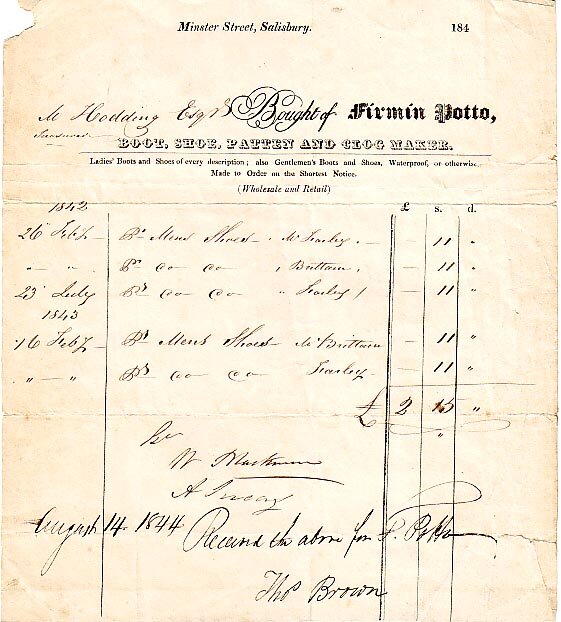 Minster Street, Salisbury. 184
M Hodding Esqr Bought of Firmin Potto,
Treasurer
BOOT, SHOE, PATTEN AND CLOG MAKER.
Ladies' Boots and Shoes of every description; also Gentlemen's Boots and Shoes, Waterproof, or otherwise.
Made to Order on the Shortest Notice.
(Wholesale and Retail)
1842 £ s. d.
26 Feby Pr Mens Shoes Mr — 11 "
" — " Pr do do " Brittain — 11 "
23 July Pr do do " — 11 "
1843
16 Feby Pr Mens Shoes Mr Brittain — 11 "
" — " Pr do do — 11 "
£ 2 15 "
W
A
August 14. 1844 Received the above for F. Potto
Thos Brown